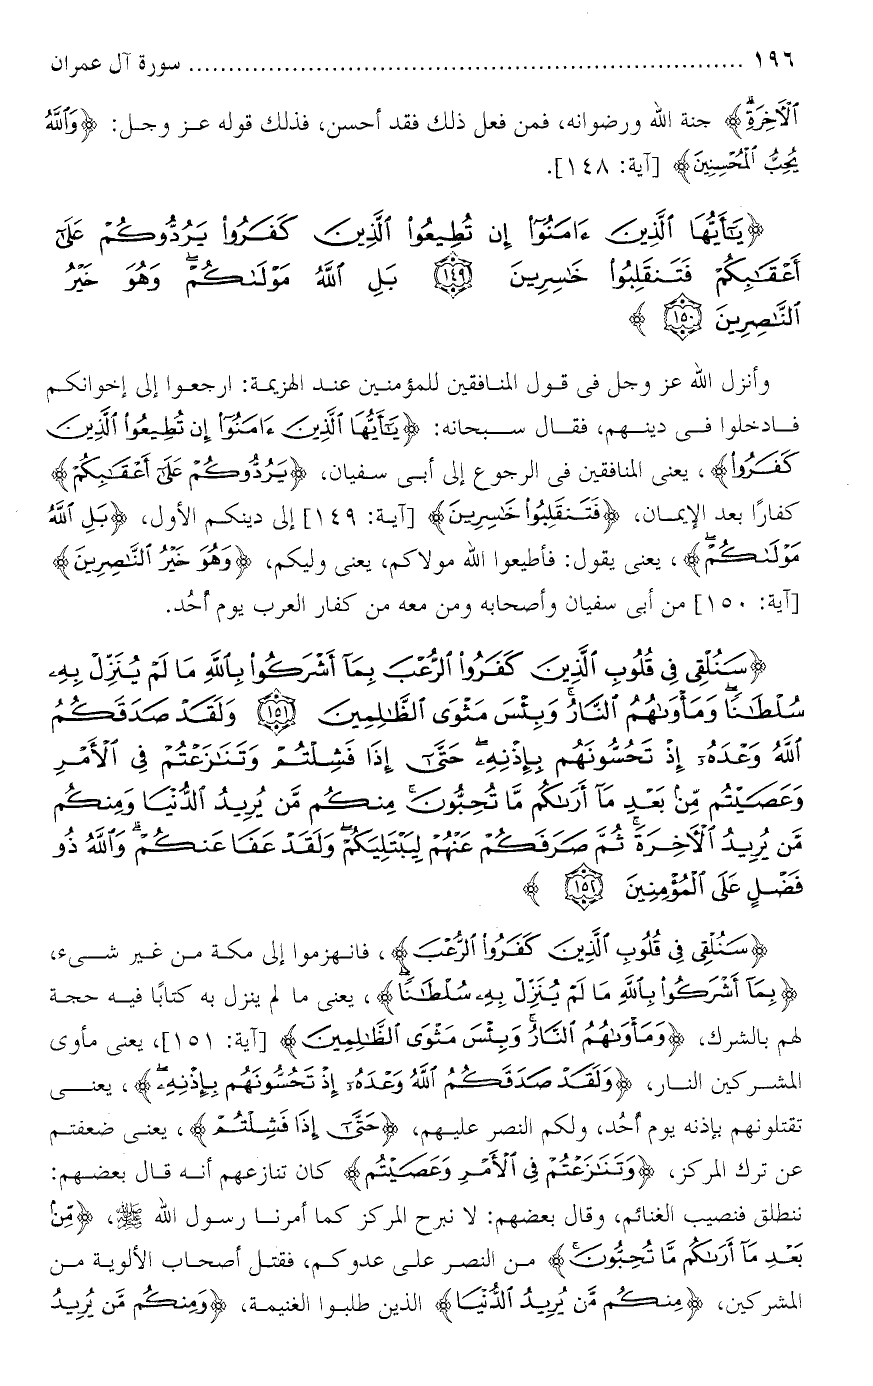 ١٩٦ ........................................................ سورة آل عمران
ٱلْأَخِرَةِۗ﴾ جنة الله ورضوانه، فمن فعل ذلك فقد أحسن، فذلك قوله عز وجل: ﴿وَٱللَّهُ
يُحِبُّ ٱلْمُحْسِنِينَ﴾ [آية: ١٤٨].
﴿يَٰٓأَيُّهَا ٱلَّذِينَ ءَامَنُوٓا۟ إِن تُطِيعُوا۟ ٱلَّذِينَ كَفَرُوا۟ يَرُدُّوكُمْ عَلَىٰٓ
أَعْقَٰبِكُمْ فَتَنقَلِبُوا۟ خَٰسِرِينَ ١٤٩ بَلِ ٱللَّهُ مَوْلَىٰكُمْۖ وَهُوَ خَيْرُ
ٱلنَّٰصِرِينَ ١٥٠﴾
وأنزل الله عز وجل فى قول المنافقين للمؤمنين عند الهزيمة: ارجعوا إلى إخوانكم
فادخلوا فى دينهم، فقال سبحانه: ﴿يَٰٓأَيُّهَا ٱلَّذِينَ ءَامَنُوٓا۟ إِن تُطِيعُوا۟ ٱلَّذِينَ
كَفَرُوا۟﴾، يعنى المنافقين فى الرجوع إلى أبى سفيان، ﴿يَرُدُّوكُمْ عَلَىٰٓ أَعْقَٰبِكُمْ﴾
كفارًا بعد الإيمان، ﴿فَتَنقَلِبُوا۟ خَٰسِرِينَ﴾ [آية: ١٤٩] إلى دينكم الأول، ﴿بَلِ ٱللَّهُ
مَوْلَىٰكُمْۖ﴾، يعنى يقول: فأطيعوا الله مولاكم، يعنى وليكم، ﴿وَهُوَ خَيْرُ ٱلنَّٰصِرِينَ﴾
[آية: ١٥٠] من أبى سفيان وأصحابه ومن معه من كفار العرب يوم أُحُد.
﴿سَنُلْقِى فِى قُلُوبِ ٱلَّذِينَ كَفَرُوا۟ ٱلرُّعْبَ بِمَآ أَشْرَكُوا۟ بِٱللَّهِ مَا لَمْ يُنَزِّلْ بِهِۦ
سُلْطَٰنًاۖ وَمَأْوَىٰهُمُ ٱلنَّارُۚ وَبِئْسَ مَثْوَى ٱلظَّٰلِمِينَ ١٥١ وَلَقَدْ صَدَقَكُمُ
ٱللَّهُ وَعْدَهُۥٓ إِذْ تَحُسُّونَهُم بِإِذْنِهِۦۖ حَتَّىٰٓ إِذَا فَشِلْتُمْ وَتَنَٰزَعْتُمْ فِى ٱلْأَمْرِ
وَعَصَيْتُم مِّنۢ بَعْدِ مَآ أَرَىٰكُم مَّا تُحِبُّونَۚ مِنكُم مَّن يُرِيدُ ٱلدُّنْيَا وَمِنكُم
مَّن يُرِيدُ ٱلْأَخِرَةَۚ ثُمَّ صَرَفَكُمْ عَنْهُمْ لِيَبْتَلِيَكُمْۖ وَلَقَدْ عَفَا عَنكُمْۗ وَٱللَّهُ ذُو
فَضْلٍ عَلَى ٱلْمُؤْمِنِينَ ١٥٢﴾
﴿سَنُلْقِى فِى قُلُوبِ ٱلَّذِينَ كَفَرُوا۟ ٱلرُّعْبَ﴾، فانهزموا إلى مكة من غير شىء،
﴿بِمَآ أَشْرَكُوا۟ بِٱللَّهِ مَا لَمْ يُنَزِّلْ بِهِۦ سُلْطَٰنًاۖ﴾، يعنى ما لم ينزل به كتابًا فيه حجة
لهم بالشرك، ﴿وَمَأْوَىٰهُمُ ٱلنَّارُۚ وَبِئْسَ مَثْوَى ٱلظَّٰلِمِينَ﴾ [آية: ١٥١]، يعنى مأوى
المشركين النار، ﴿وَلَقَدْ صَدَقَكُمُ ٱللَّهُ وَعْدَهُۥٓ إِذْ تَحُسُّونَهُم بِإِذْنِهِۦۖ﴾، يعنى
تقتلونهم بإذنه يوم أُحُد، ولكم النصر عليهم، ﴿حَتَّىٰٓ إِذَا فَشِلْتُمْ﴾، يعنى ضعفتم
عن ترك المركز، ﴿وَتَنَٰزَعْتُمْ فِى ٱلْأَمْرِ وَعَصَيْتُم﴾ كان تنازعهم أنه قال بعضهم:
ننطلق فنصيب الغنائم، وقال بعضهم: لا نبرح المركز كما أمرنا رسول الله ﷺ، ﴿مِّنۢ
بَعْدِ مَآ أَرَىٰكُم مَّا تُحِبُّونَۚ﴾ من النصر على عدوكم، فقتل أصحاب الألوية من
المشركين، ﴿مِنكُم مَّن يُرِيدُ ٱلدُّنْيَا﴾ الذين طلبوا الغنيمة، ﴿وَمِنكُم مَّن يُرِيدُ